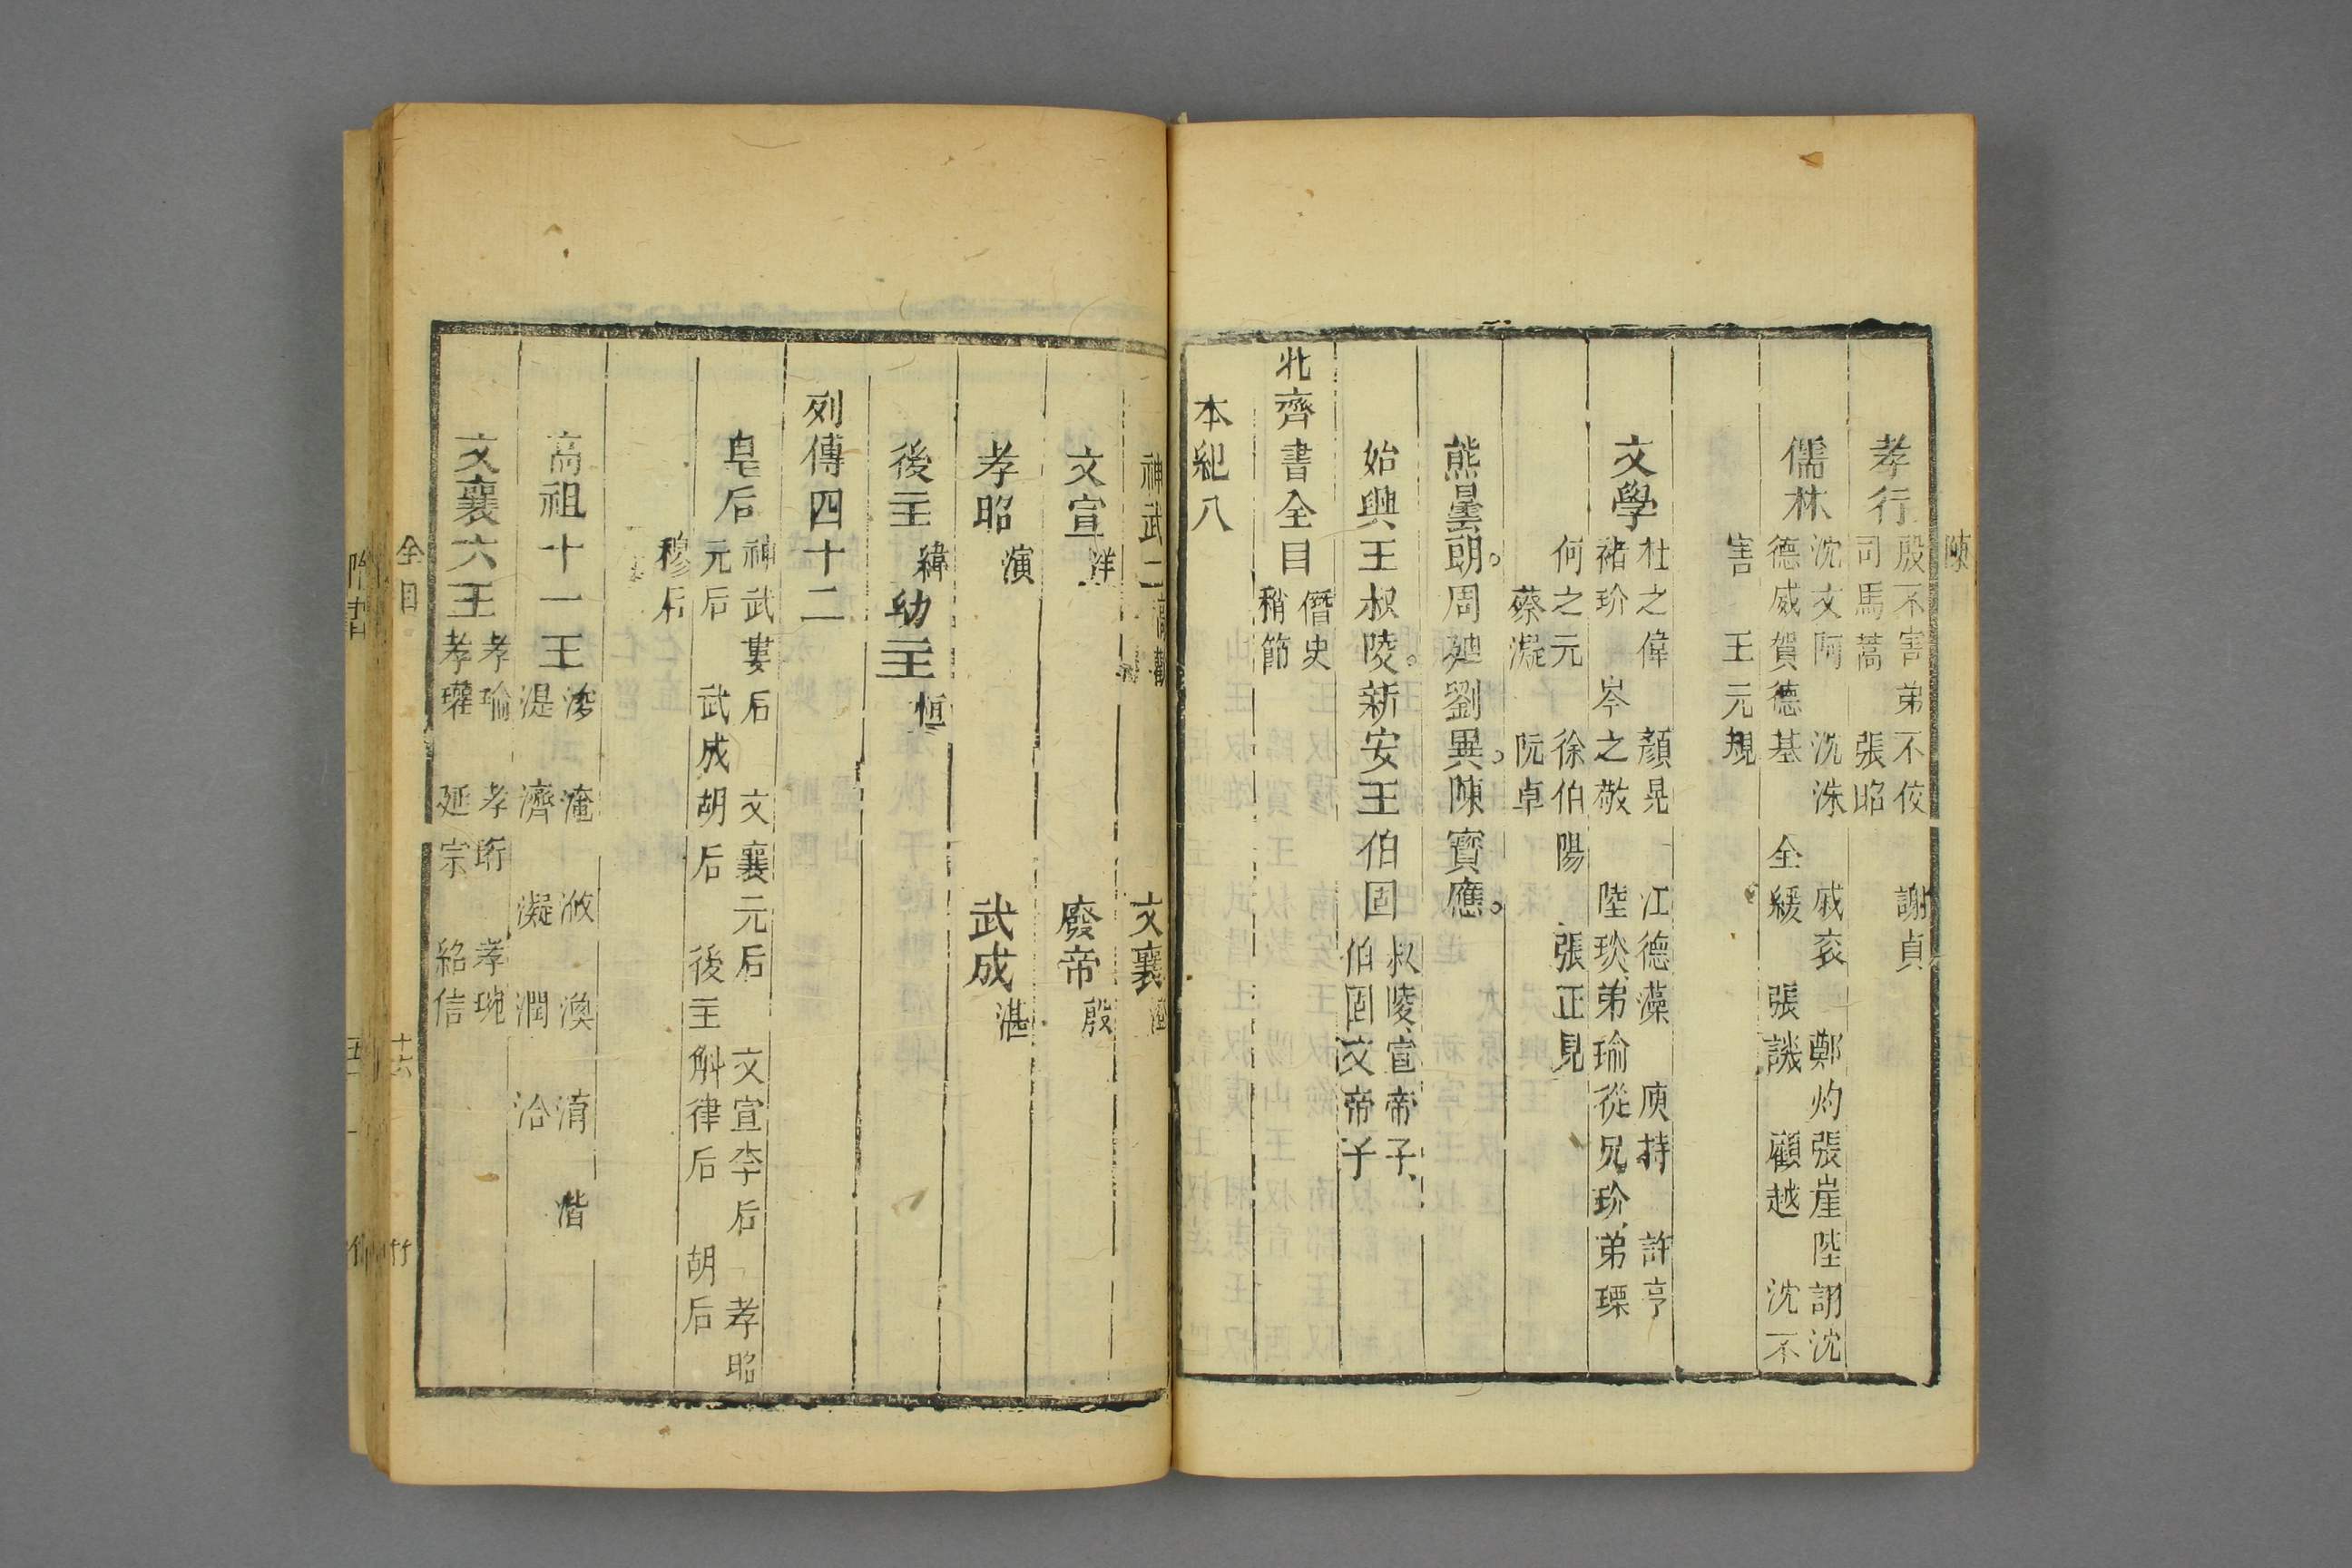 陳
孝行
殷不害弟不佞 謝貞
司馬暠 張昭
儒林
沈文阿 沈洙 戚衮 鄭灼張崖陸詡沈
德威賀德基 全緩 張譏 顧越 沈不
害 王元規
文學
杜之偉 顏晃 江德藻 庾持 許亨
褚玠 岑之敬 陸琰弟瑜從兄玠弟瑮
何之元 徐伯陽 張正見
蔡凝 阮卓
熊曇朗。周迪劉異。陳寶應。
始興王叔陵。新安王伯固
叔陵宣帝子
伯固文帝子
北齊書全目
僭史
稍節
本紀八
神武二高歡 文襄
文宣洋 廢帝殷
孝昭演 武成湛
後主緯 幼主恒
列傳四十二
皂后
神武婁后 文襄元后 文宣李后 孝昭
元后 武成胡后 後主斛律后 胡后
穆后
高祖十一王
浚 淹 浟 渙 淯 湝
湜 濟 凝 潤 洽
文襄六王
孝瑜 孝珩 孝琬
孝瓘 延宗 紹信
全目
十六
竹